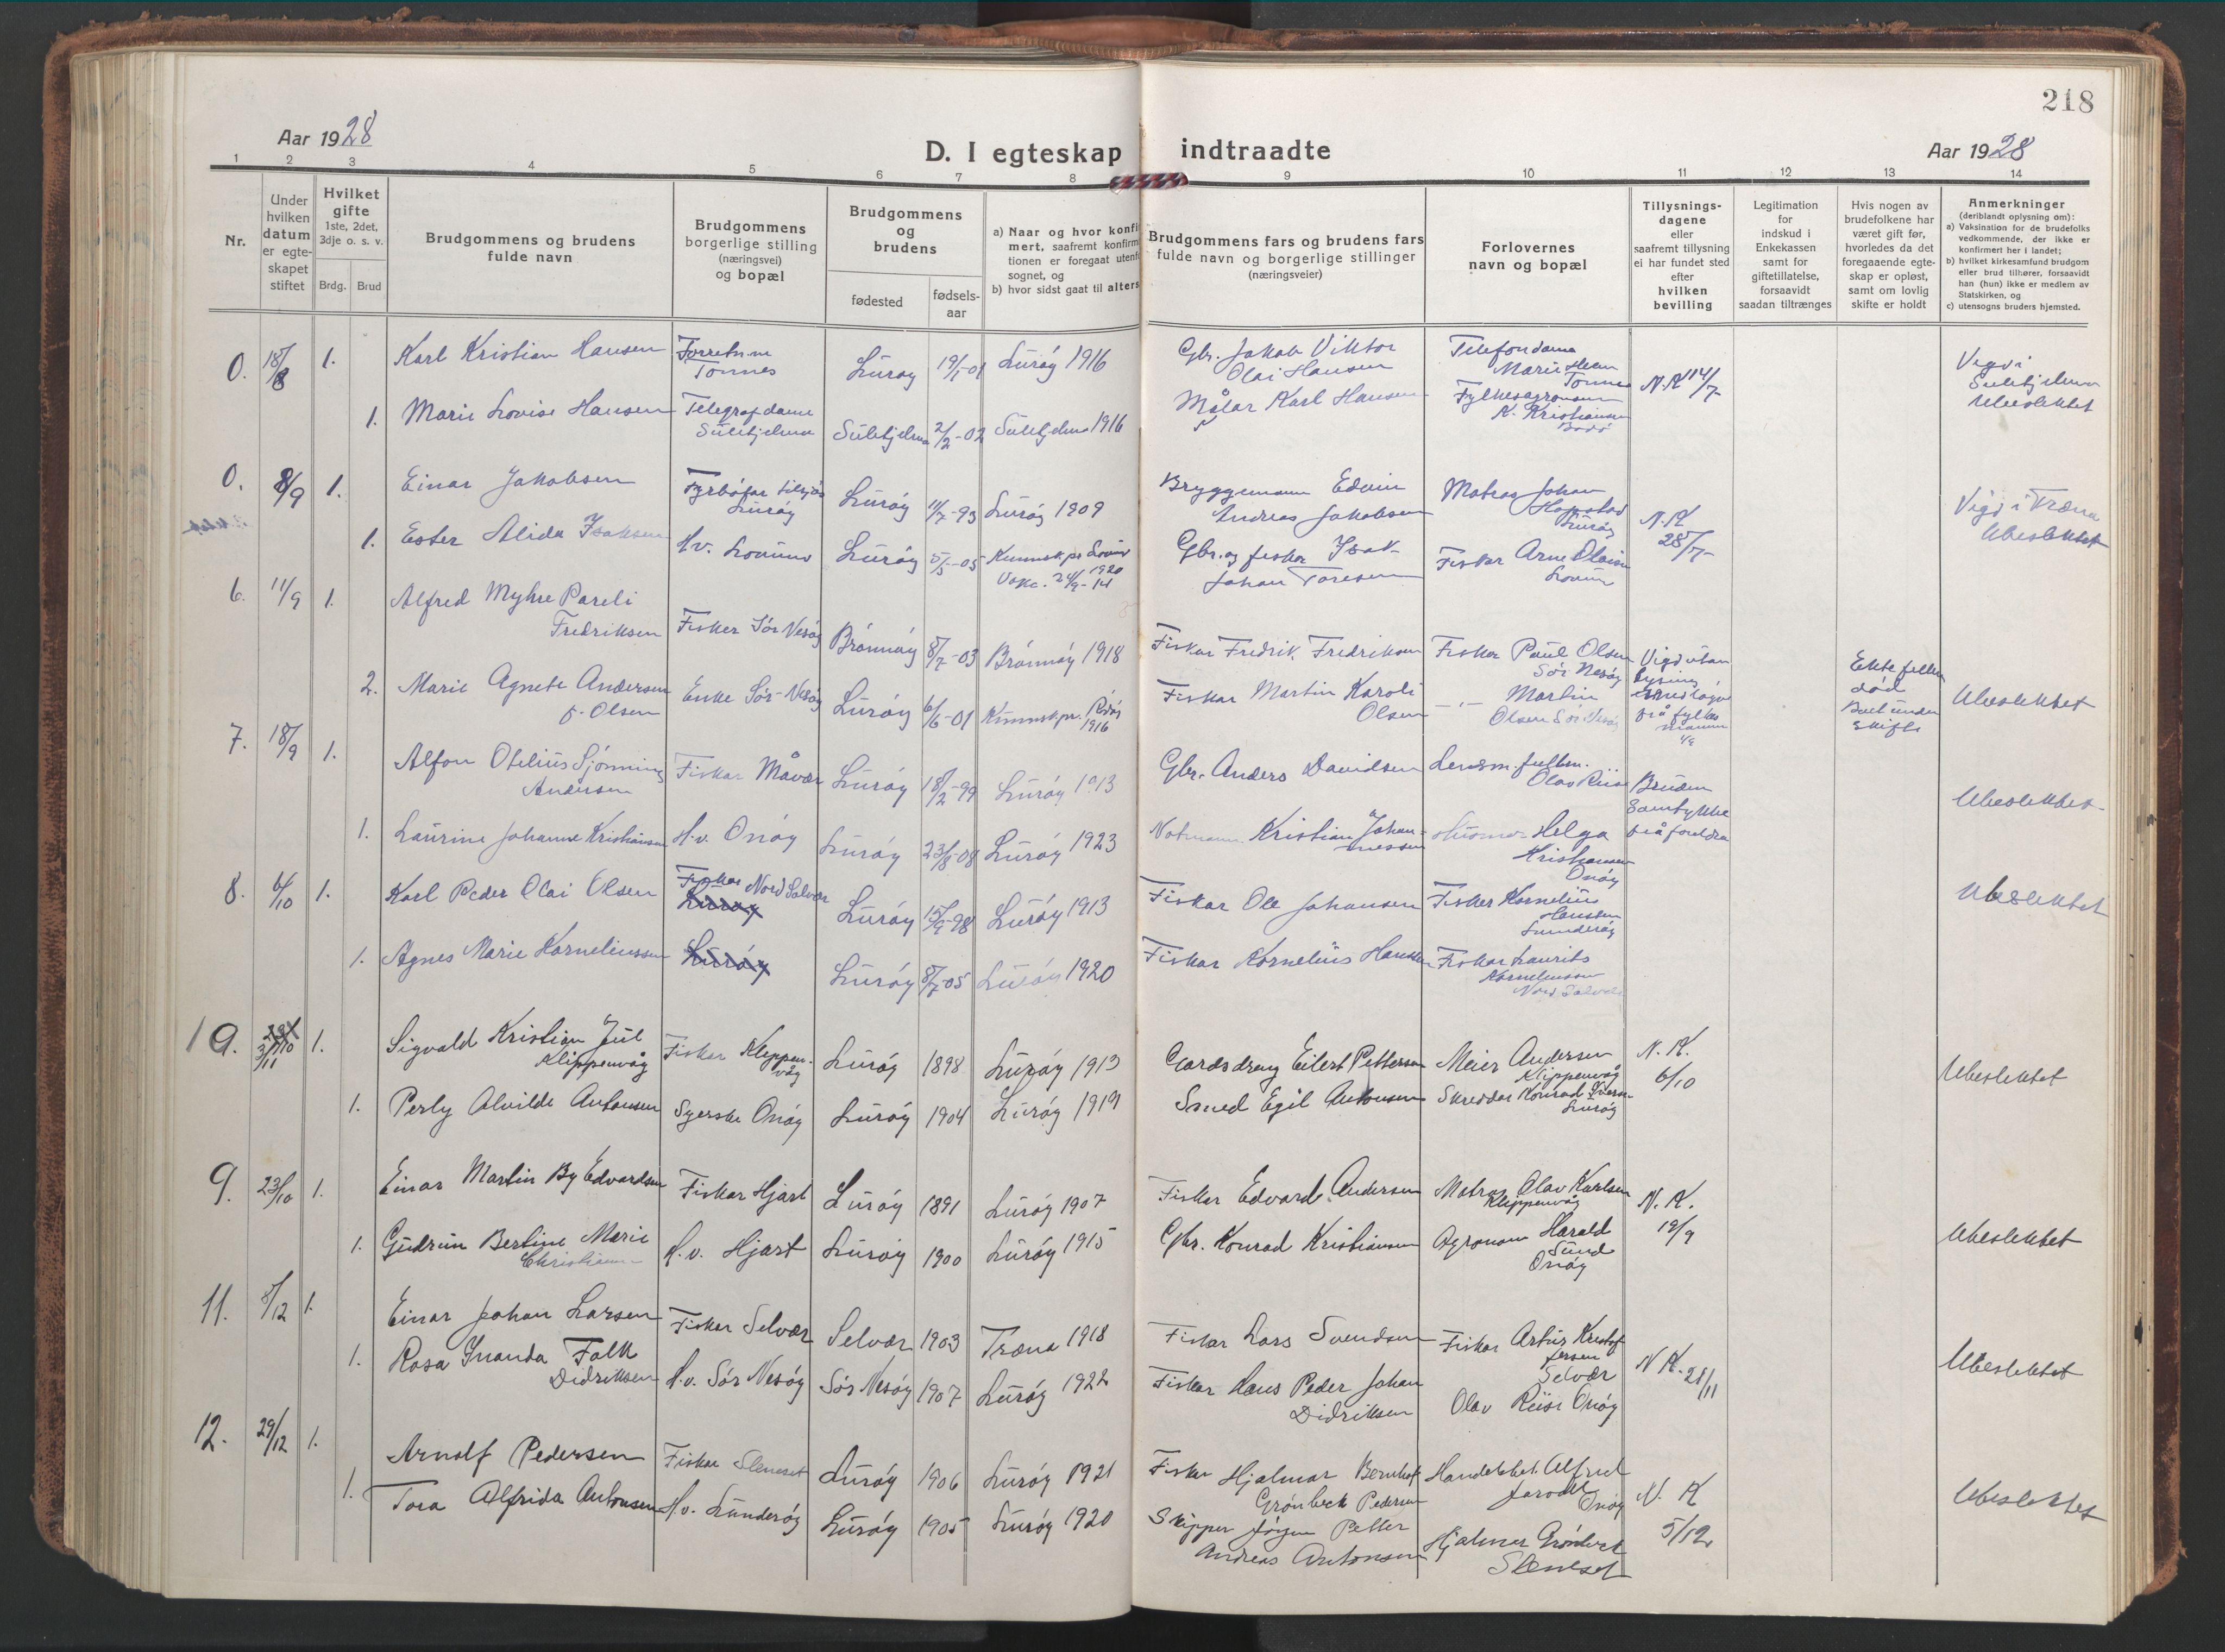 218
Aar 1928
D. I egteskap indtraadte
Aar 1928
1 2 3 4 5 6 7 8 9 10 11 12 13 14
Nr.
Under hvilken datum er egte-skapet stiftet
Hvilket gifte 1ste, 2det, 3dje o. s. v.
Brdg. Brud
Brudgommens og brudens fulde navn
Brudgommens borgerlige stilling (næringsvei) og bopæl
Brudgommens og brudens
fødested
fødsels-aar
a) Naar og hvor konfi
mert, saafremt konfirm
tionen er foregaat utenf
sognet, og
b) hvor sidst gaat til alters
Brudgommens fars og brudens fars
fulde navn og borgerlige stillinger
(næringsveier)
Forlovernes
navn og bopæl
Tillysnings-
dagene
eller
saafremt tillysning
ei har fundet sted
efter
hvilken
bevilling
Legitimation
for
indskud i
Enkekassen
samt for
giftetillatelse,
forsaavidt
saadan tiltrænges
Hvis nogen av
brudefolkene har
været gift før,
hvorledes da det
foregaaende egte-
skap er opløst,
samt om lovlig
skifte er holdt
Anmerkninger
(deriblandt oplysning om):
a) Vaksination for de brudefolks
vedkommende, der ikke er
konfirmert her i landet;
b) hvilket kirkesamfund brudgom
eller brud tilhører, forsaavidt
han (hun) ikke er medlem av
Statskirken, og
c) utensogns bruders hjemsted.
0. 18/8 1. Karl Kristian Hansen Forretn.m Tonnes Lurøy 19/1-01 Lurøy 1916 Gbr. Jakob Viktor Olai Hansen Telefondame Marie Tonnes N.K 14/7 Vigd i Sulitjelma Ubeslektet
1. Marie Lovise Hansen Telegrafdame Sulitjelma Sulitjelma 2/2-02 Sulitjelma 1916 Målar Karl Hansen Fylkesagronom K. Kristiansen Bodø
0. 8/9 1. Einar Jakobsen Fyrbøtar Lurøy Lurøy 11/7-93 Lurøy 1909 Bryggemann Edvin Andreas Jakobsen Matros Johan Hopstad Lurøy N.K 28/7 Vigd i Træna Ubeslektet
1. Ester Alida Isaksen H.v. Lovund Lurøy 5/5-05 Kunnsk.pr. Lovund 1920 Vakc. 24/9-14 Gbr. og fiskar Isak Johan Toresen Fiskar Arne Olaisen Lovund
6. 11/9 1. Alfred Myhre Pareli Fredriksen Fisker Sør Nesøy Brønnøy 8/7-03 Brønnøy 1918 Fiskar Fredrik Fredriksen Fisker Paul Olsen Sør Nesøy Vigd utan lysing frå fylkesmannen Ektefellen død Buet under skifte Ubeslektet
2. Marie Agnete Andersen f. Olsen Enke Sør-Nesøy Lurøy 6/6-01 Kunnsk.pr. Rødøy 1916 Fiskar Martin Karoli Olsen -"- Martin Olsen Sør Nesøy
7. 18/9 1. Alfon Otelius Sjønning Andersen Fiskar Måvær Lurøy 18/2-99 Lurøy 1913 Gbr. Anders Davidsen Lensm.fullm. Olav Riise Bruden Samtykke frå foreldra Ubeslektet
1. Laurine Johanne Kristiansen H.v. Onøy Lurøy 23/8-08 Lurøy 1923 Notmann Kristian Johannessen Helga Kristiansen Onøy
8. 6/10 1. Karl Peder Olai Olsen Fiskar Nord Solvær Lurøy Lurøy 15/9-98 Lurøy 1913 Fiskar Ole Johansen Fisker Kornelius Hanssen Sunderøy Ubeslektet
1. Agnes Marie Korneliussen Lurøy Lurøy 8/7-05 Lurøy 1920 Fiskar Kornelius Hanssen Fiskar Laurits Korneliussen Nord Solvær
10. 3/11 1. Sigvald Kristian Jul Klippenvåg Fisker Klippenvåg Lurøy 1898 Lurøy 1913 Gardsdreng Eilert Pettersen Meier Andersen Klippenvåg N.K. 6/10 Ubeslektet
1. Perly Alvilde Antonsen Syerske Onøy Lurøy 1904 Lurøy 1919 Smed Egil Antonsen Skreddar Konrad Iversen Lurøy
9. 23/10 1. Einar Martin By Edvardsen Fiskar Hjart Lurøy 1891 Lurøy 1907 Fiskar Edvard Andersen Matros Olav Karlsen Klippenvåg N.K. 19/9 Ubeslektet
1. Gudrun Bertine Marie Christiansen H.v. Hjart Lurøy 1900 Lurøy 1915 Gbr. Konrad Kristiansen Agronom Harald Sund Onøy
11. 8/12 1. Einar Johan Larsen Fiskar Selvær Selvær 1903 Træna 1918 Fiskar Lars Svendsen Fiskar Artur Kristoffersen Selvær N.K. 28/11 Ubeslektet
1. Rosa Inanda Falk Didriksen H.v. Sør Nesøy Sør Nesøy 1907 Lurøy 1922 Fiskar Hans Peder Johan Didriksen Olav Riise Onøy
12. 29/12 1. Arnolf Pedersen Fiskar Sleneset Lurøy 1906 Lurøy 1921 Fiskar Hjalmar Bernhof Grønbeck Pedersen Handelsbet. Alfred Onøy N.K 5/12 Ubeslektet
1. Tora Alfrida Antonsen H.v. Sunderøy Lurøy 1905 Lurøy 1920 Skipper Jørgen Petter Andreas Antonsen Hjalmar Grønbeck Sleneset